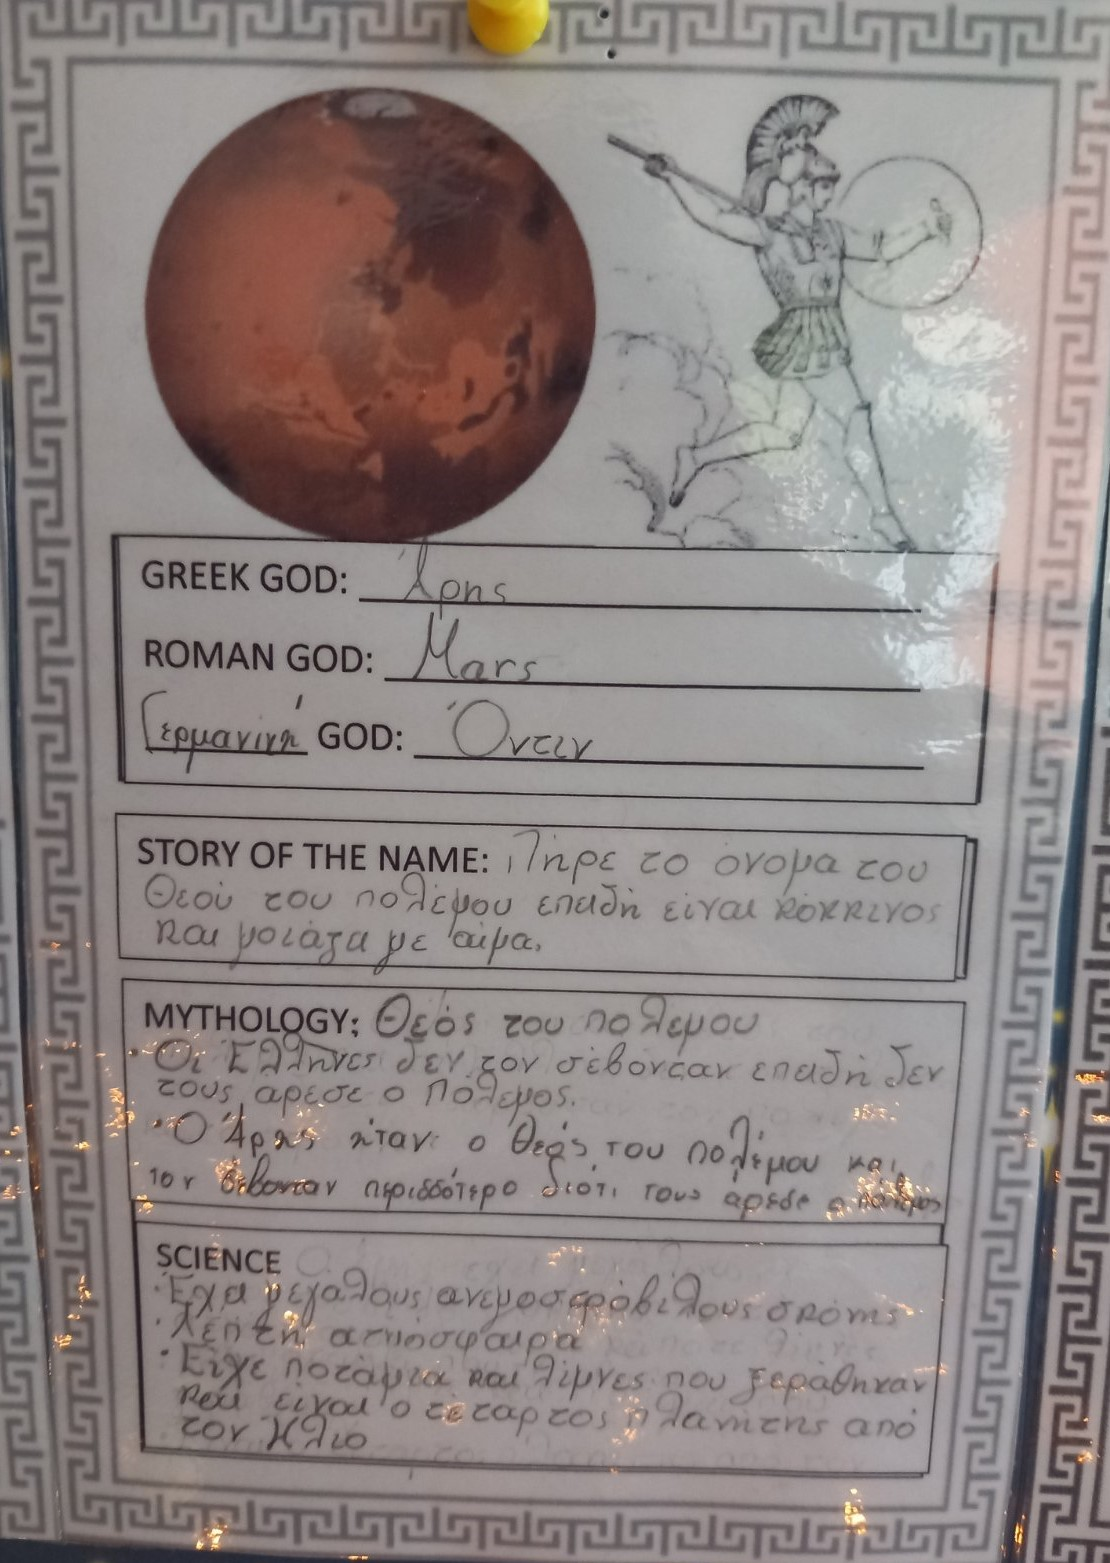 GREEK GOD: Άρης
ROMAN GOD: Mars
Γερμανική GOD: Όντιν
STORY OF THE NAME: Πήρε το όνομα του
Θεού του πολέμου επειδή είναι κόκκινος
και μοιάζει με αίμα.
MYTHOLOGY: Θεός του πολέμου
· Οι Έλληνες δεν τον σέβονταν επειδή δεν
τους αρεσε ο Πόλεμος.
· Ο Άρης ήταν ο θεός του πολέμου και
τον σέβονταν περισσότερο διότι τους αρεσε ο πόλεμος
SCIENCE
· Έχει μεγαλους ανεμοστρόβιλους σκόνης
· Λεπτή ατμόσφαιρα
· Είχε ποτάμια και λίμνες που ξεράθηκαν
και είναι ο τέταρτος πλανητης από
τον Ηλιο